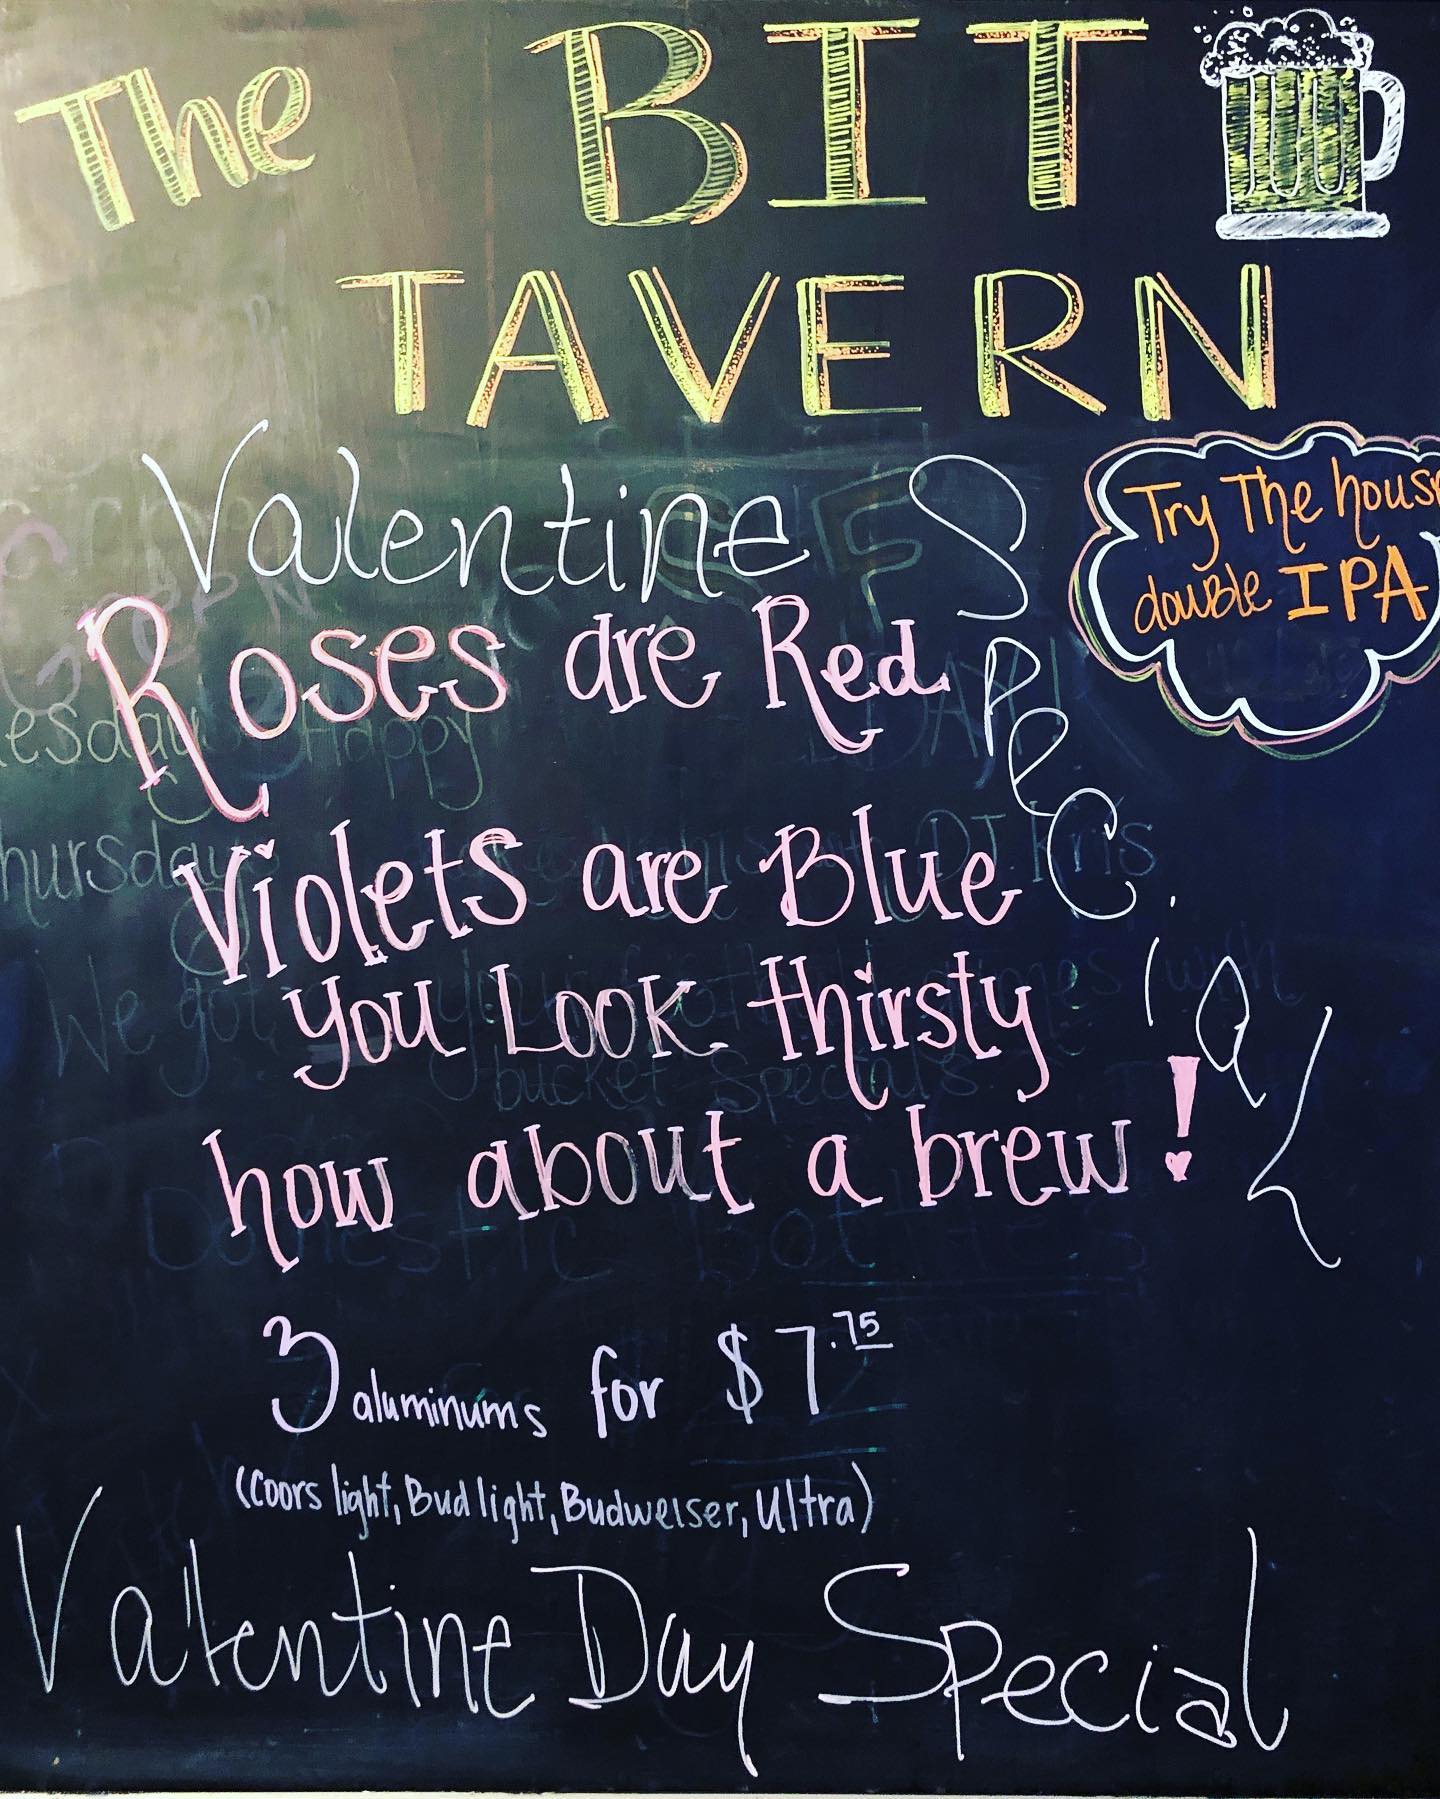 The BIT
TAVERN
Valentine Special
Try The house
double IPA
Roses are Red
Violets are Blue
you Look thirsty
how about a brew!
3 aluminums for $7.75
(Coors light, Bud light, Budweiser, Ultra)
Valentine Day Special
Happy
DJ Kris
We got
bucket Specials
Domestic bottles